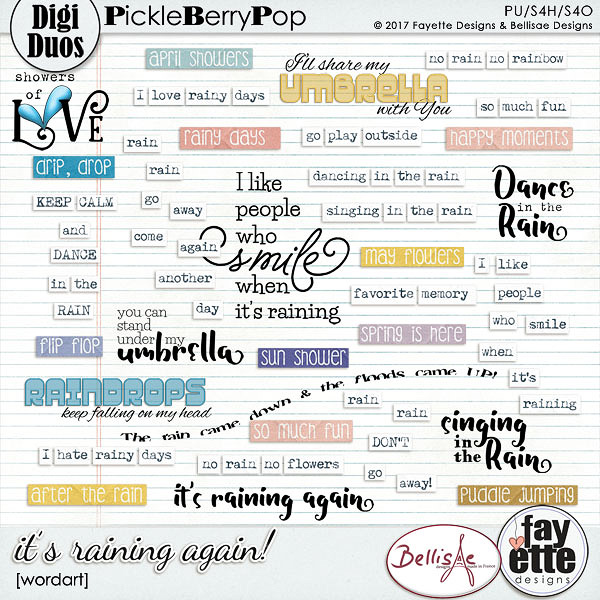 Digi
Duos
PickleBerryPop
PU/S4H/S4O
© 2017 Fayette Designs & Bellisae Designs
showers
of
LOVE
april showers
I'll share my
UMBRELLA
with You
no rain no rainbow
I love rainy days
so much fun
rain
rainy days
go play outside
happy moments
drip, drop
rain
I like
people
who
smile
when
it's raining
dancing in the rain
Dance
in the
Rain
KEEP CALM
and
DANCE
in the
RAIN
go
away
come
again
another
day
singing in the rain
may flowers
I like
people
who smile
when
it's
raining
favorite memory
you can
stand
under my
umbrella
spring is here
flip flop
sun shower
RAINDROPS
keep falling on my head
The rain came down & the floods came UP!
rain
rain
DON'T
go
away!
so much fun
singing
in the
Rain
I hate rainy days
no rain no flowers
after the rain
it's raining again
puddle jumping
it's raining again!
[wordart]
BellisAe
designs
made in France
fay
ette
designs